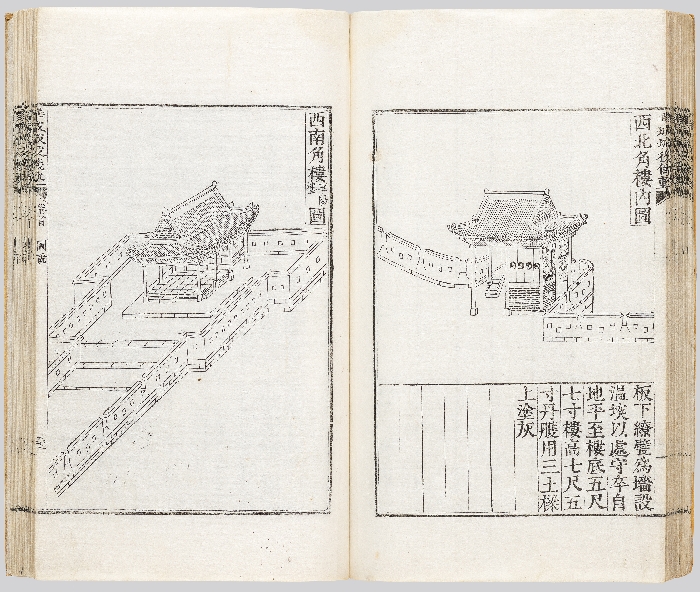 西北角樓內圖
板下繚甓爲墻設
溫堗以處守卒自
地平至樓底五尺
七寸樓高七尺五
寸丹雘用三土樑
上塗灰
西南角樓圖
卷首 圖說